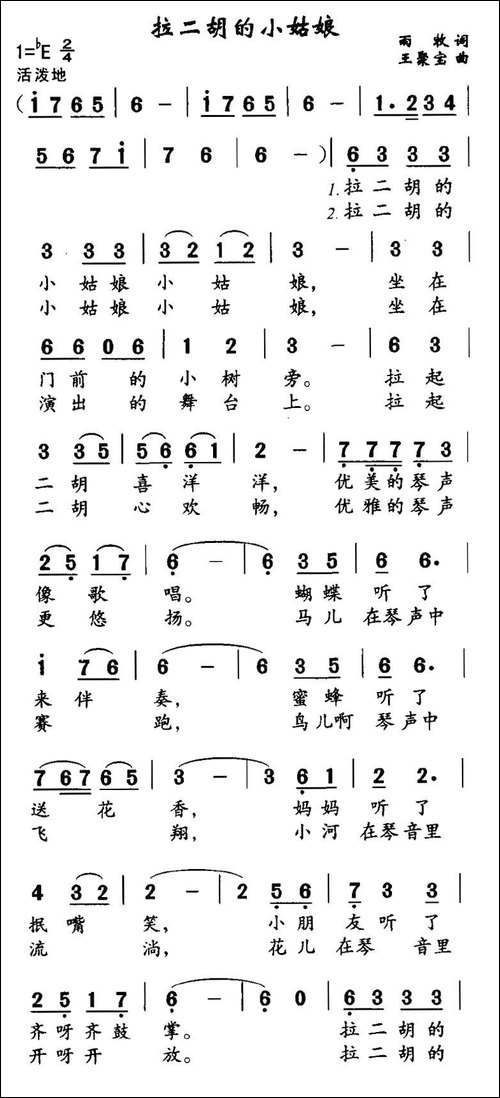 拉二胡的小姑娘
1=♭E 2/4
雨牧 词
王聚宝 曲
活泼地
( i 7 6 5 | 6 - | i 7 6 5 | 6 - | 1. 2 3 4 |
5 6 7 i | 7 6 | 6 - ) | 6 3 3 3 |
1.拉 二 胡 的
2.拉 二 胡 的
3 3 3 | 3 2 1 2 | 3 - | 3 3 |
小 姑 娘 小 姑 娘, 坐 在
小 姑 娘 小 姑 娘, 坐 在
6 6 0 6 | 1 2 | 3 - | 6 3 |
门 前 的 小 树 旁。 拉 起
演 出 的 舞 台 上。 拉 起
3 3 5 | 5 6 6 1 | 2 - | 7 7 7 7 3 |
二 胡 喜 洋 洋, 优 美 的 琴 声
二 胡 心 欢 畅, 优 雅 的 琴 声
2 5 1 7 | 6 - | 6 3 5 | 6 6. |
像 歌 唱。 蝴 蝶 听 了
更 悠 扬。 马 儿 在 琴 声 中
i 7 6 | 6 - | 6 3 5 | 6 6. |
来 伴 奏, 蜜 蜂 听 了
赛 跑, 鸟 儿 啊 琴 声 中
7 6 7 6 5 | 3 - | 3 6 1 | 2 2. |
送 花 香, 妈 妈 听 了
飞 翔, 小 河 在 琴 音 里
4 3 2 | 2 - | 2 5 5 | 7 3 3 |
抿 嘴 笑, 小 朋 友 听 了
流 淌, 花 儿 在 琴 音 里
2 5 1 7 | 6 - | 6 0 | 6 3 3 3 |
齐 呀 齐 鼓 掌。 拉 二 胡 的
开 呀 开 放。 拉 二 胡 的